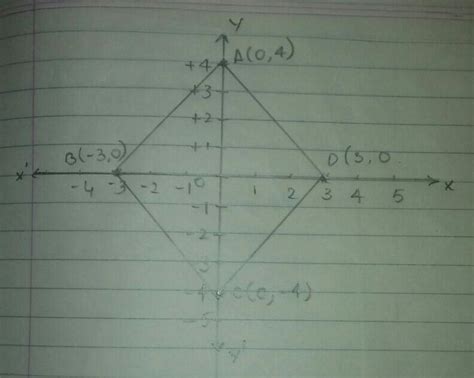 Y
A(0,4)
+4
+3
+2
+1
B(-3,0)
D(3,0
X'
-4 -3 -2 -1 0 1 2 3 4 5
X
-1
-2
-3
-4 C(0,-4)
-5
Y'